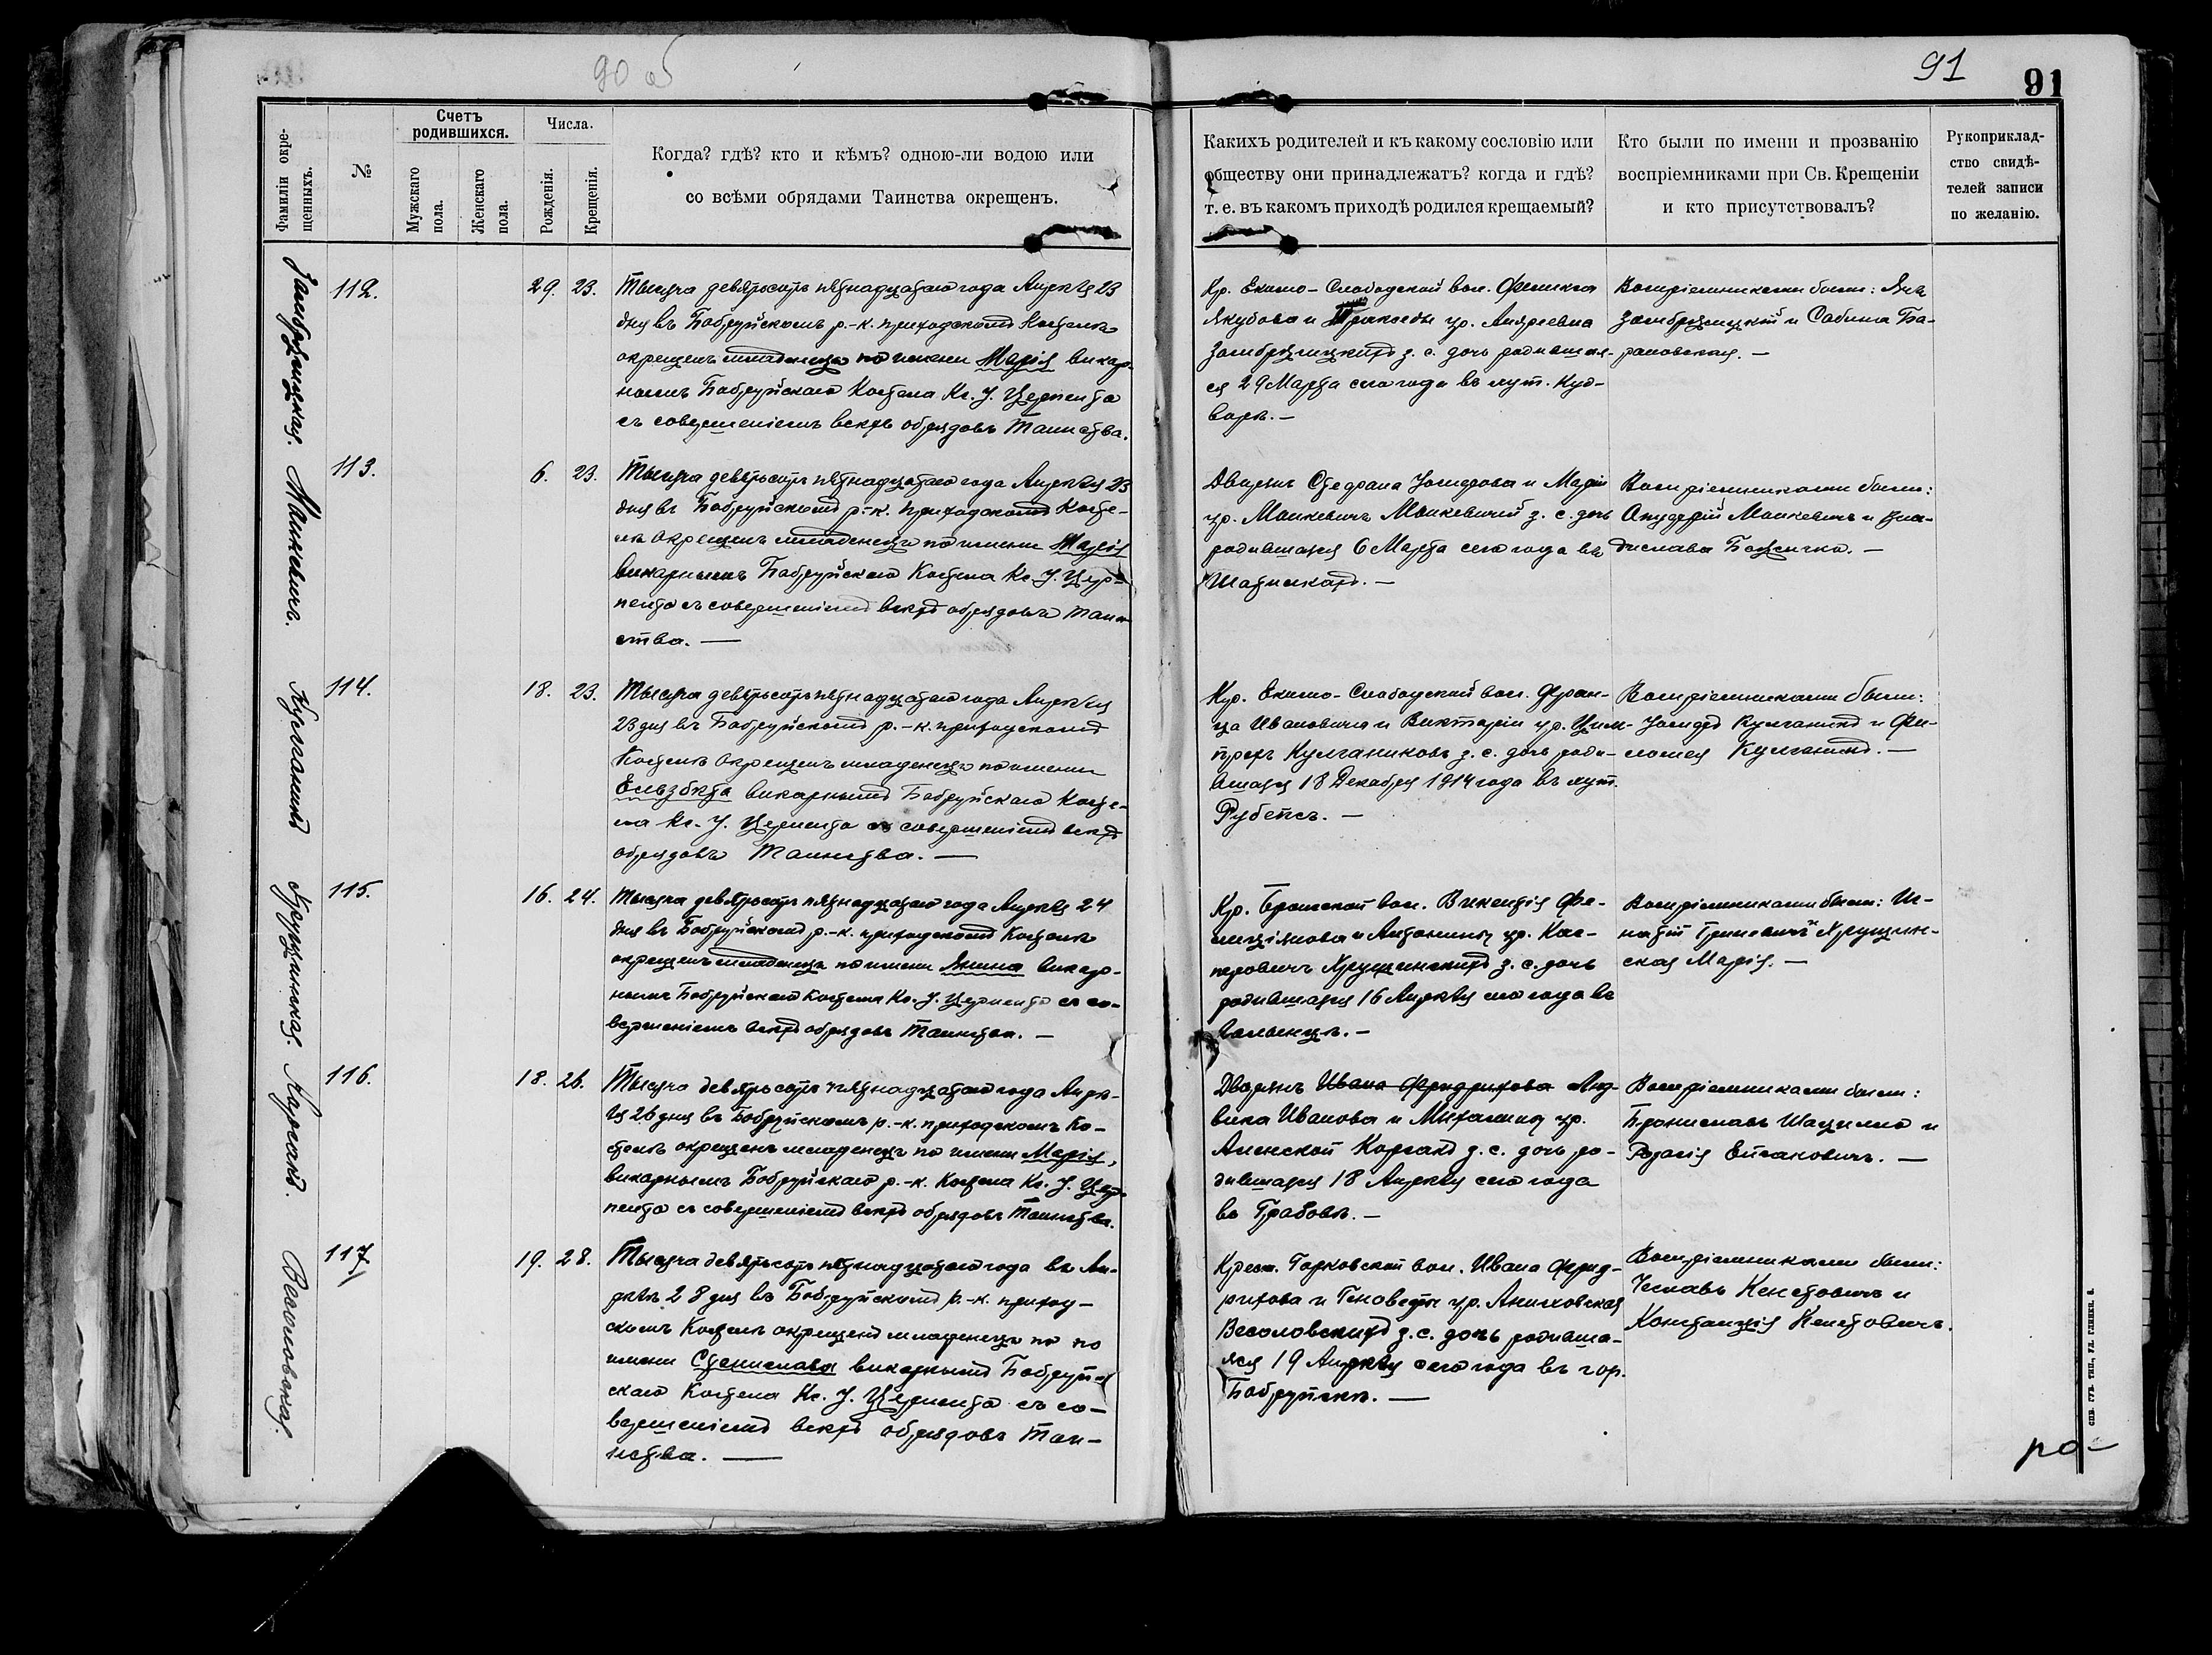 90 об
91
91
Фамиліи окре-
щенныхъ.
№
Счетъ
родившихся.
Мужскаго
пола.
Женскаго
пола.
Числа.
Рожденія.
Крещенія.
Когда? гдѣ? кто и кѣмъ? одною-ли водою или
со всѣми обрядами Таинства окрещенъ.
Какихъ родителей и къ какому сословію или
обществу они принадлежатъ? когда и гдѣ?
т. е. въ какомъ приходѣ родился крещаемый?
Кто были по имени и прозванію
воспріемниками при Св. Крещеніи
и кто присутствовалъ?
Рукоприклад-
ство свидѣ-
телей записи
по желанію.
112.
29. 23.
Тысяча девятьсотъ пятнадцатаго года Апрѣля 23
дня въ Бобруйскомъ р.-к. приходскомъ Костелѣ
окрещенъ младенецъ по имени Марія викар-
нымъ Бобруйскаго Костела Кс. І. Церпента
съ совершеніемъ всѣхъ обрядовъ Таинства.
Кр. Екимо-Слободской вол. Феликса
Якубова и Пракседы ур. Андреевна
з. с. дочь родившая-
ся 29 Марта сего года въ
Воспріемниками были: Янъ
и Сабина Ба-
рановская. —
113.
Мацкевичъ.
6. 23.
Тысяча девятьсотъ пятнадцатаго года Апрѣля 23
дня въ Бобруйскомъ р.-к. приходскомъ Косте-
лѣ окрещенъ младенецъ по имени Марія
викарнымъ Бобруйскаго Костела Кс. І. Цер-
пента съ совершеніемъ всѣхъ обрядовъ Таин-
ства. —
Дворянъ Стефана Іосифова и Маріи
ур. Мацкевичъ Мацкевичей з. с. дочь
родившаяся 6 Марта сего года въ
Шатилкахъ. —
Воспріемниками были:
Онуфрій Мацкевичъ и Вла-
дислава —
114.
Кулганикъ
18. 23.
Тысяча девятьсотъ пятнадцатаго года Апрѣля
23 дня въ Бобруйскомъ р.-к. приходскомъ
Костелѣ окрещенъ младенецъ по имени
Ельзбѣта викарнымъ Бобруйскаго Косте-
ла Кс. І. Церпента съ совершеніемъ всѣхъ
обрядовъ Таинства. —
Кр. Екимо-Слободской вол. Фран-
ца Ивановича и Викторіи ур.
Кулганиковъ з. с. дочь роди-
вшаяся 18 Декабря 1914 года въ
—
Воспріемниками были:
Іосифъ Кулганикъ и Фи-
ломея Кулганикъ. —
115.
Хрущинская.
16. 24.
Тысяча девятьсотъ пятнадцатаго года Апрѣля 24
дня въ Бобруйскомъ р.-к. приходскомъ Костелѣ
окрещенъ младенецъ по имени Янина викар-
нымъ Бобруйскаго Костела Кс. І. Церпента съ со-
вершеніемъ всѣхъ обрядовъ Таинства. —
Кр. Брожской вол. Викентія Фе-
лиціянова и Антонины ур. Кас-
перовичъ Хрущинскихъ з. с. дочь
родившаяся 16 Апрѣля сего года въ
—
Воспріемниками были: Иг-
натій Гриневичъ и Хрущин-
ская Марія. —
116.
18. 26.
Тысяча девятьсотъ пятнадцатаго года Апрѣ-
ля 26 дня въ Бобруйскомъ р.-к. приходскомъ Ко-
стелѣ окрещенъ младенецъ по имени Марія,
викарнымъ Бобруйскаго р.-к. Костела Кс. І. Цер-
пента съ совершеніемъ всѣхъ обрядовъ Таинства.
Дворянъ Ивана Фридрихова Люд-
вика Иванова и Михалины ур.
з. с. дочь ро-
дившаяся 18 Апрѣля сего года
въ Грабовѣ. —
Воспріемниками были:
Брониславъ Шацилло и
Розалія —
117
Весоловская.
19. 28.
Тысяча девятьсотъ пятнадцатаго года въ Ап-
рѣлѣ 28 дня въ Бобруйскомъ р.-к. приход-
скомъ Костелѣ окрещенъ младенецъ по по
имени Станислава викарнымъ Бобруй-
скаго Костела Кс. І. Церпента съ со-
вершеніемъ всѣхъ обрядовъ Таи-
нства. —
Крест. Горковской вол. Ивана Фрид-
рихова и Геновефы ур.
Весоловскихъ з. с. дочь родивша-
яся 19 Апрѣля сего года въ гор.
Бобруйскѣ. —
Воспріемниками были:
Чеславъ и
Констанція
СПБ. ГУБ. ТИП., УЛ. ГЛИНКИ, 8.